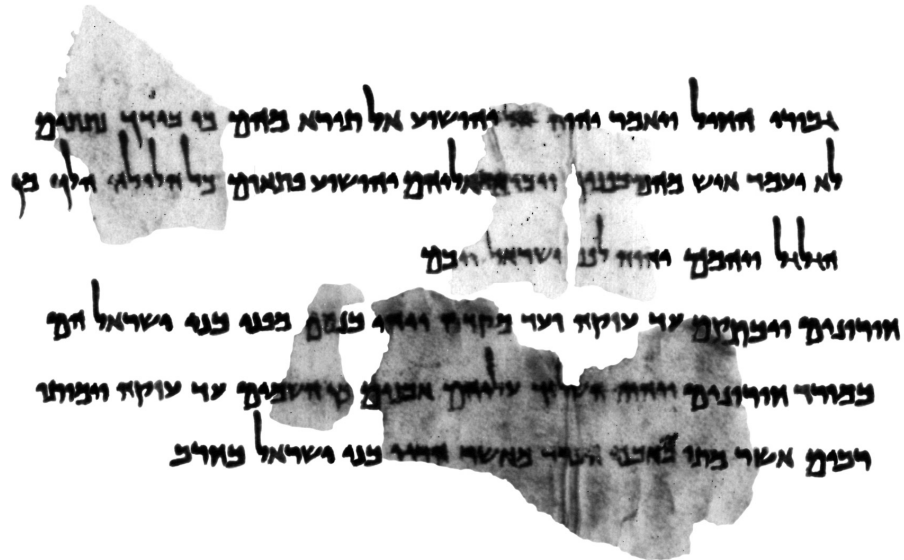 גבורי החיל ויאמר יהוה אל יהושוע אל תירא מהם כי בידך נתתים
לא יעמד איש מהם בפניך ויבא אליהם יהושוע פתאום כל הלילה הלך מן
הגלגל ויהמם יהוה לפני ישראל ויכם
חורונים עד עזקה ועד מקדה ויהי בנסם מפני בני ישראל הם
במורד חורונים ויהוה השליך עליהם אבנים מן השמים עד עזקה וימתו
רבים אשר מתו באבני הברד מאשר הרגו בני ישראל בחרב